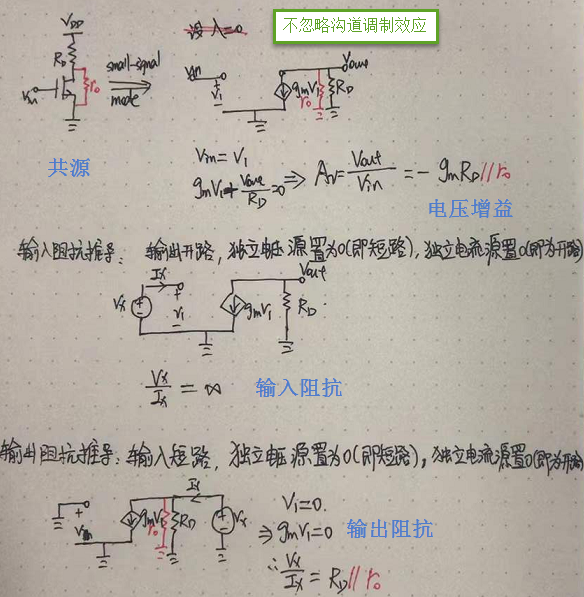 设 λ=0
不忽略沟道调制效应
VDD
RD
ro
Vin
small-signal
mode
共源
Vin
V1
gmV1
ro
RD
Vout
Vin = V1
gmV1 + Vout/RD = 0 ⇒ Av = Vout/Vin = - gmRD//ro
电压增益
输入阻抗推导: 输出开路, 独立电压源置为0(即短路), 独立电流源置0(即为开路)
Vx
Ix
V1
gmV1
RD
Vout
Vx/Ix = ∞
输入阻抗
输出阻抗推导: 输入短路, 独立电压源置为0(即短路), 独立电流源置0(即为开路)
Vin
gmV1
ro
RD
Ix
Vx
V1=0.
⇒ gmV1=0
输出阻抗
∴ Vx/Ix = RD//ro